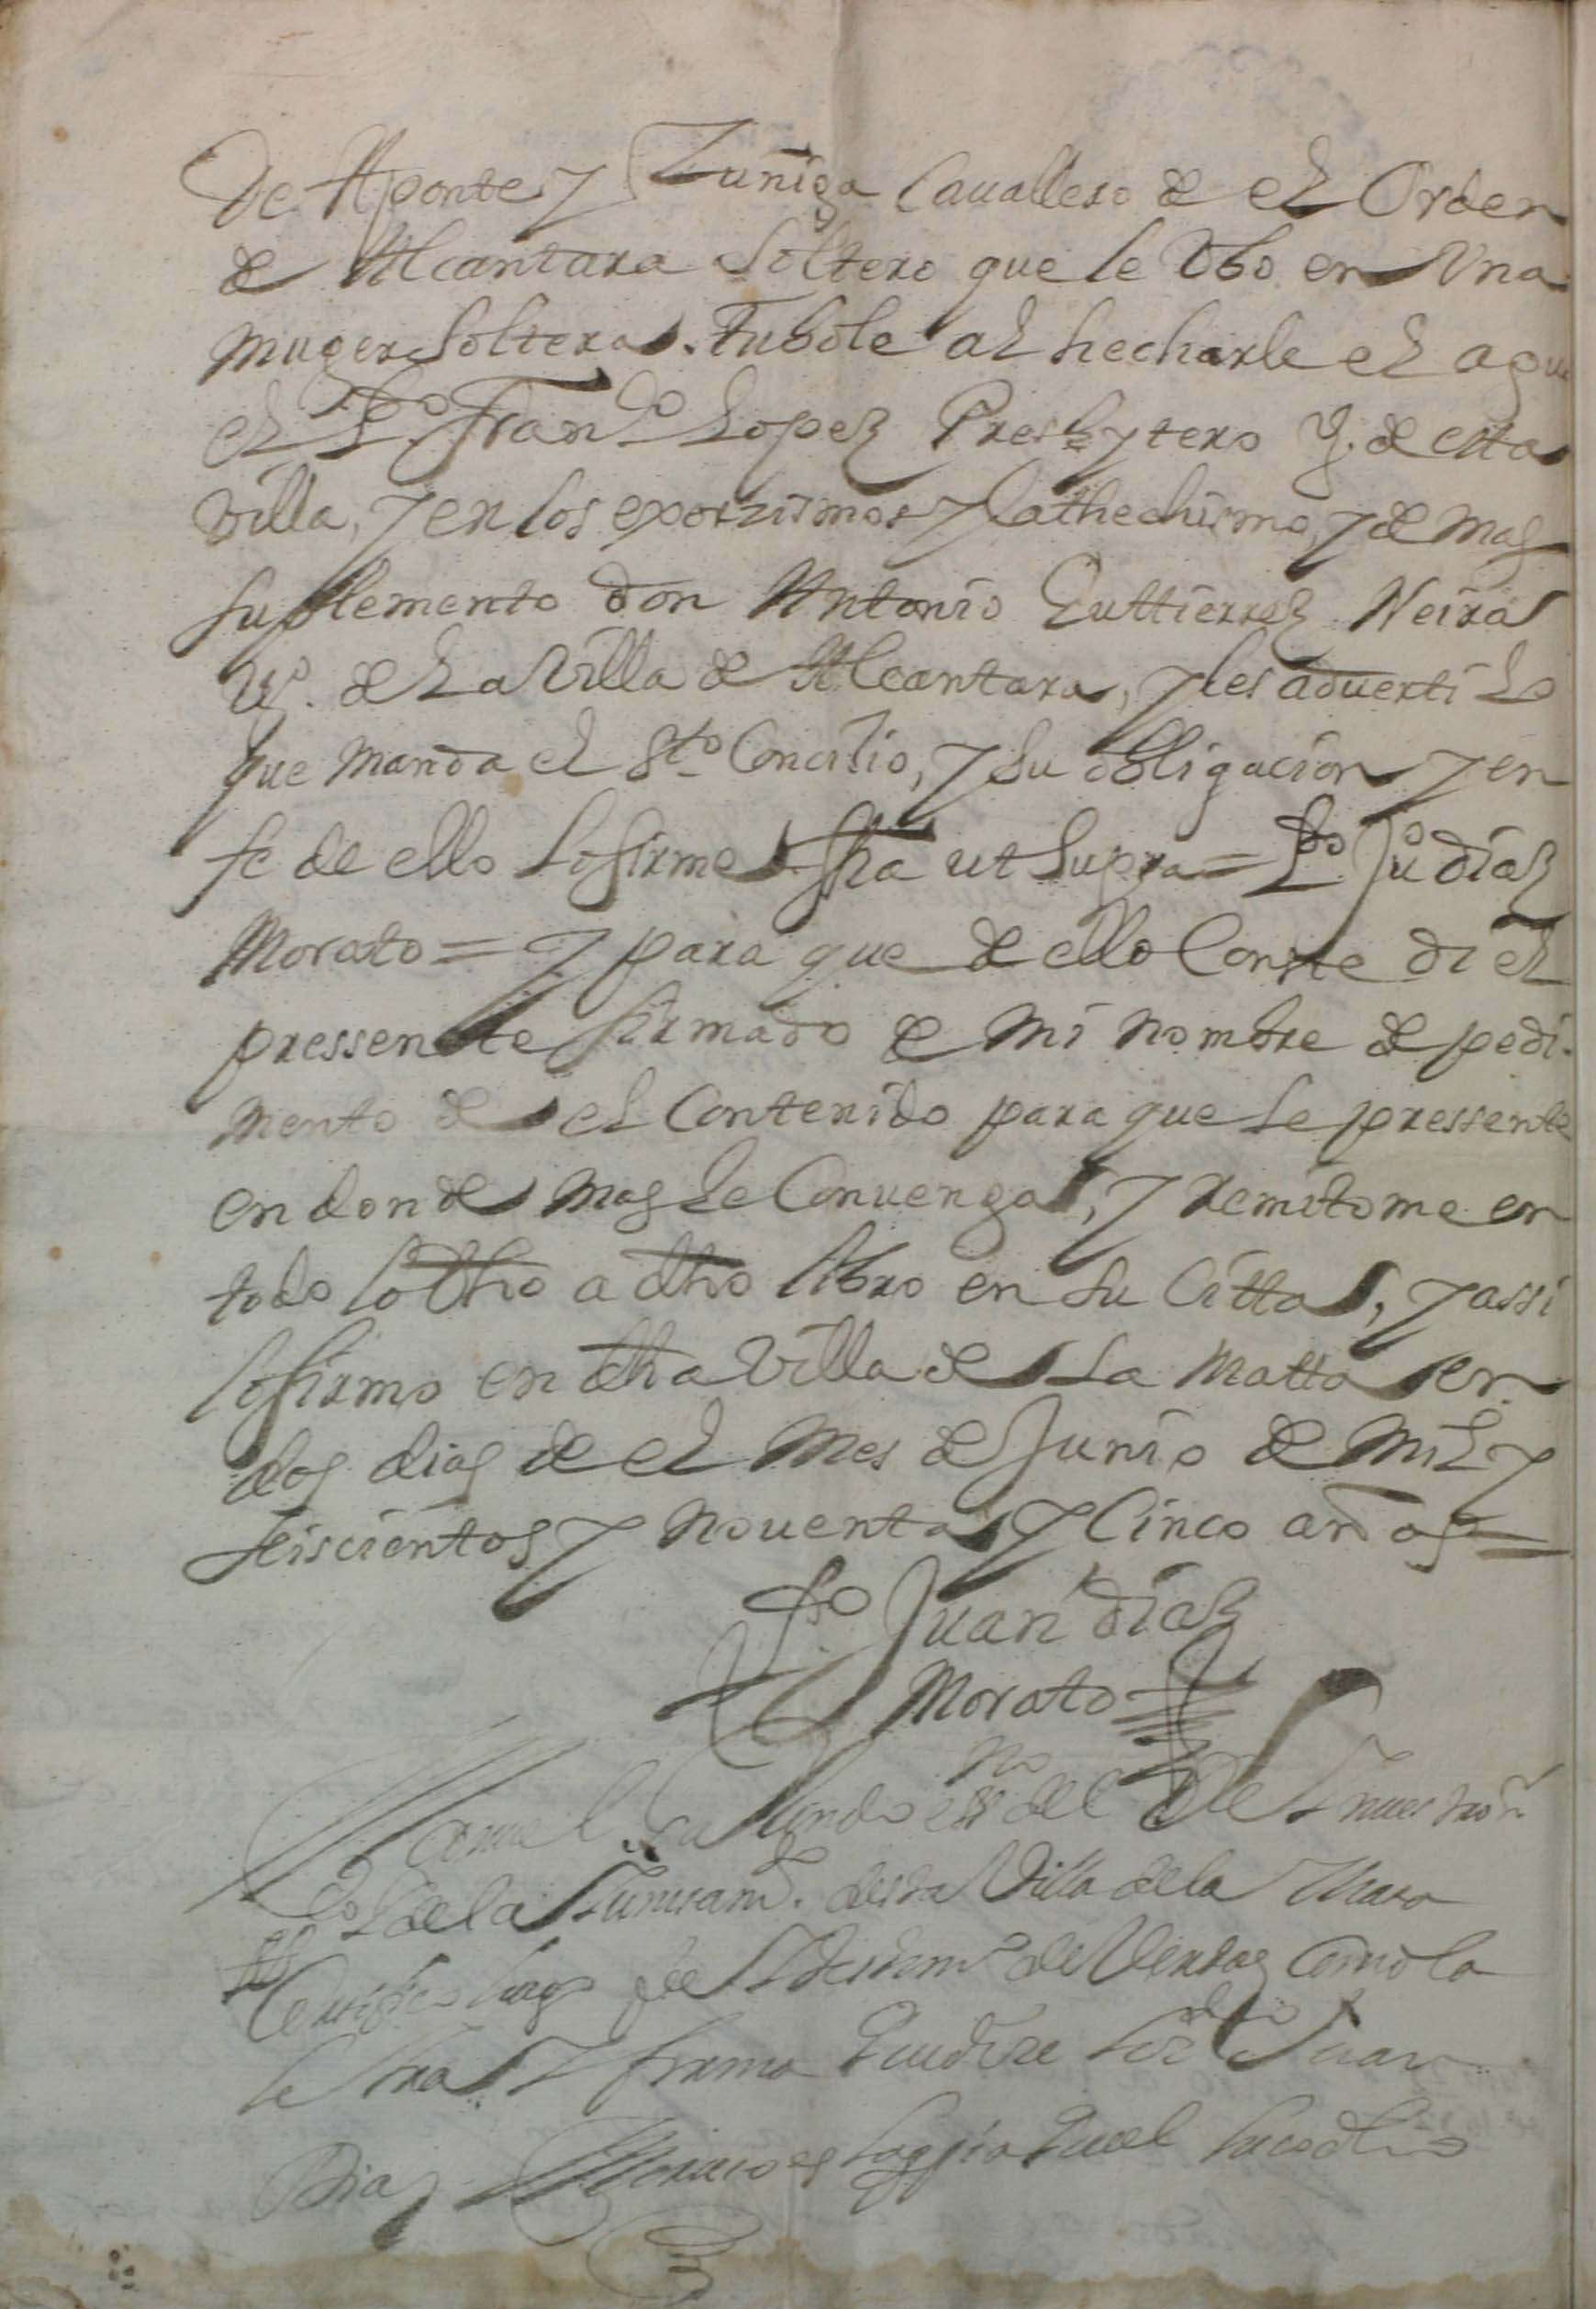 De Aponte y Zuñiga Cauallero de el Orden
de Alcantara Soltero que le Vbo en Vna
muger Soltera. Tubole al hecharle el agua
el Ldo. Franco. Lopez Presbytero V. de esta
Villa, y en los exorzismos y Cathechismo, y demas
suplemento don Antonio Guttierrez Neira
Vo. de La Villa de Alcantara, y les aduerti Lo
que manda el Sto. Concilio, y Su obligacion y en
fe de ello Lo firme fha ut Supra = Ldo. Juo diaz
Morato = y para que de ello Conste di el
pressente firmado de mi nombre de pedi-
mento de el Contenido para que Se pressente
en donde mas Le Conuenga, y remitome en
todo lo dho a dho libro en Su Citta, y assi
lo firmo en dha Villa de La Matta en
dos dias de el mes de Junio de mil y
seiscientos y nouenta y Cinco años =
Ldo Juan diaz
Morato
no del
de la desta Villa de la Mata
Certifico de Verdad Como la
letra y firma que dize Ldo Juan
Diaz Morato es propia del